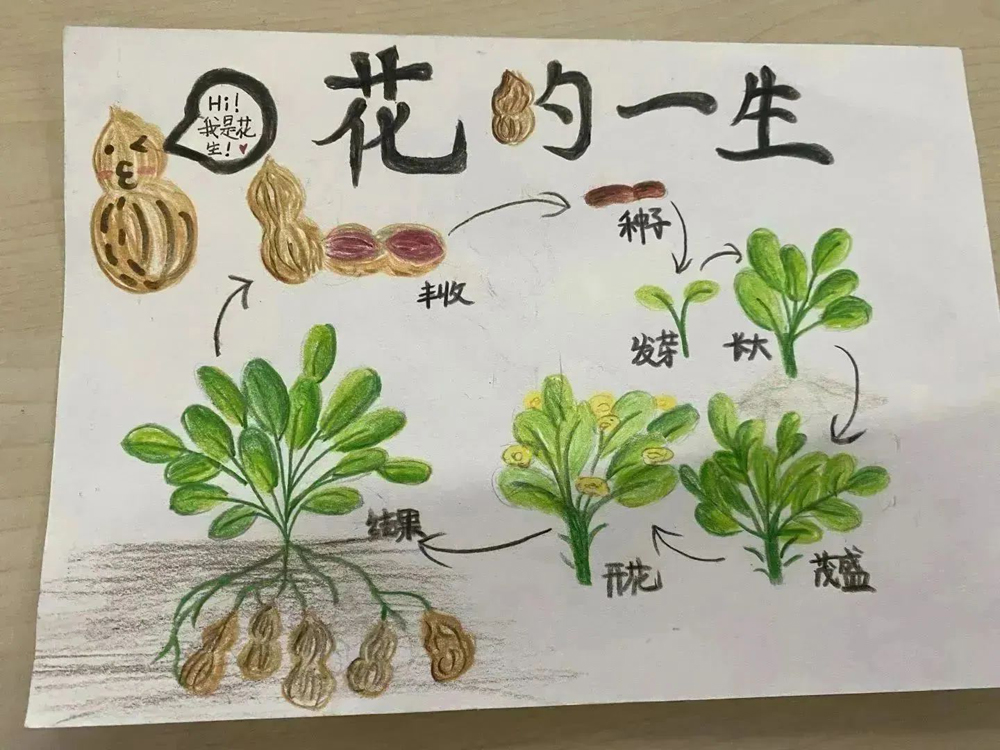 Hi!
我是花
生!
花的一生
种子
丰收
发芽
长大
结果
开花
茂盛